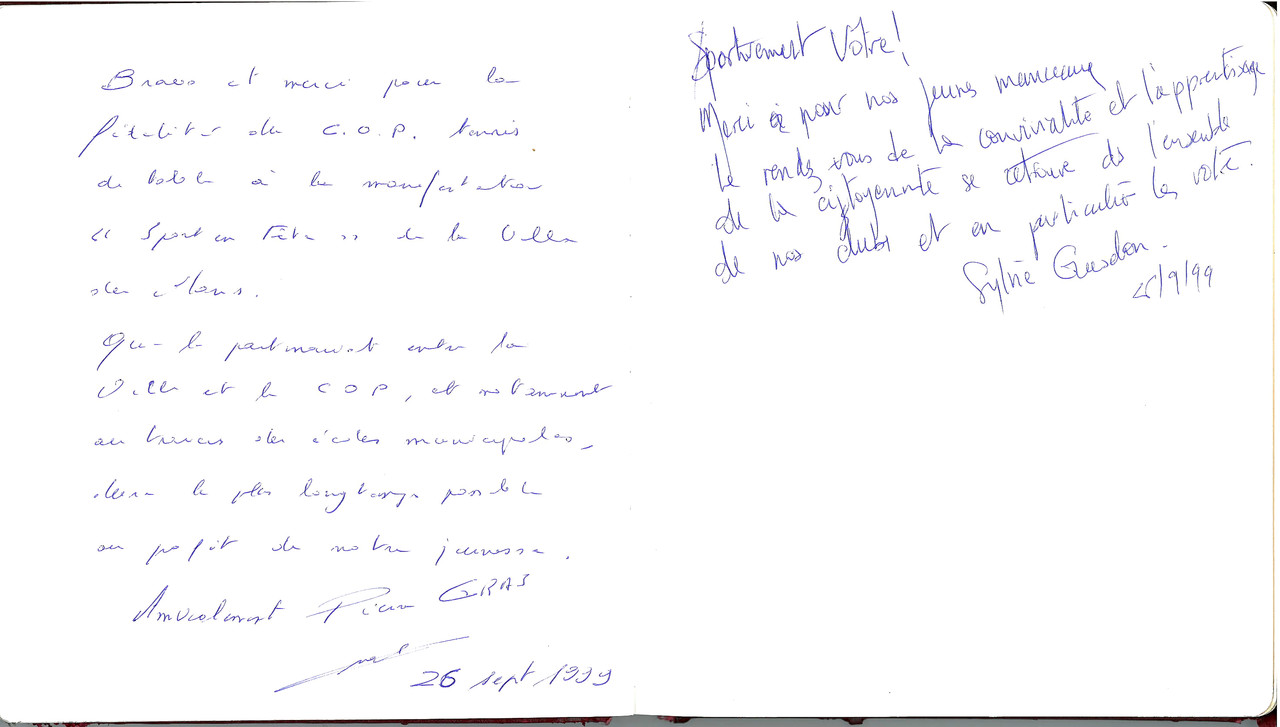 Bravo et merci pour la
fidélité du C.O.P. tennis
de table à la manifestation
« Sport en Fête » de la Ville
du Mans.
Que le partenariat entre la
Ville et le COP, et notamment
au travers des écoles municipales,
dure le plus longtemps possible
au profit de notre jeunesse.
Amicalement Pierre GRAS
26 sept 1999
Sportivement Vôtre!
Merci pour nos jeunes manceaux
Le rendez vous de la convivialité et l'apprentissage
de la citoyenneté se retrouve ds l'ensemble
de nos clubs et en particulier les votre.
Sylvie Guesdon.
/9/99